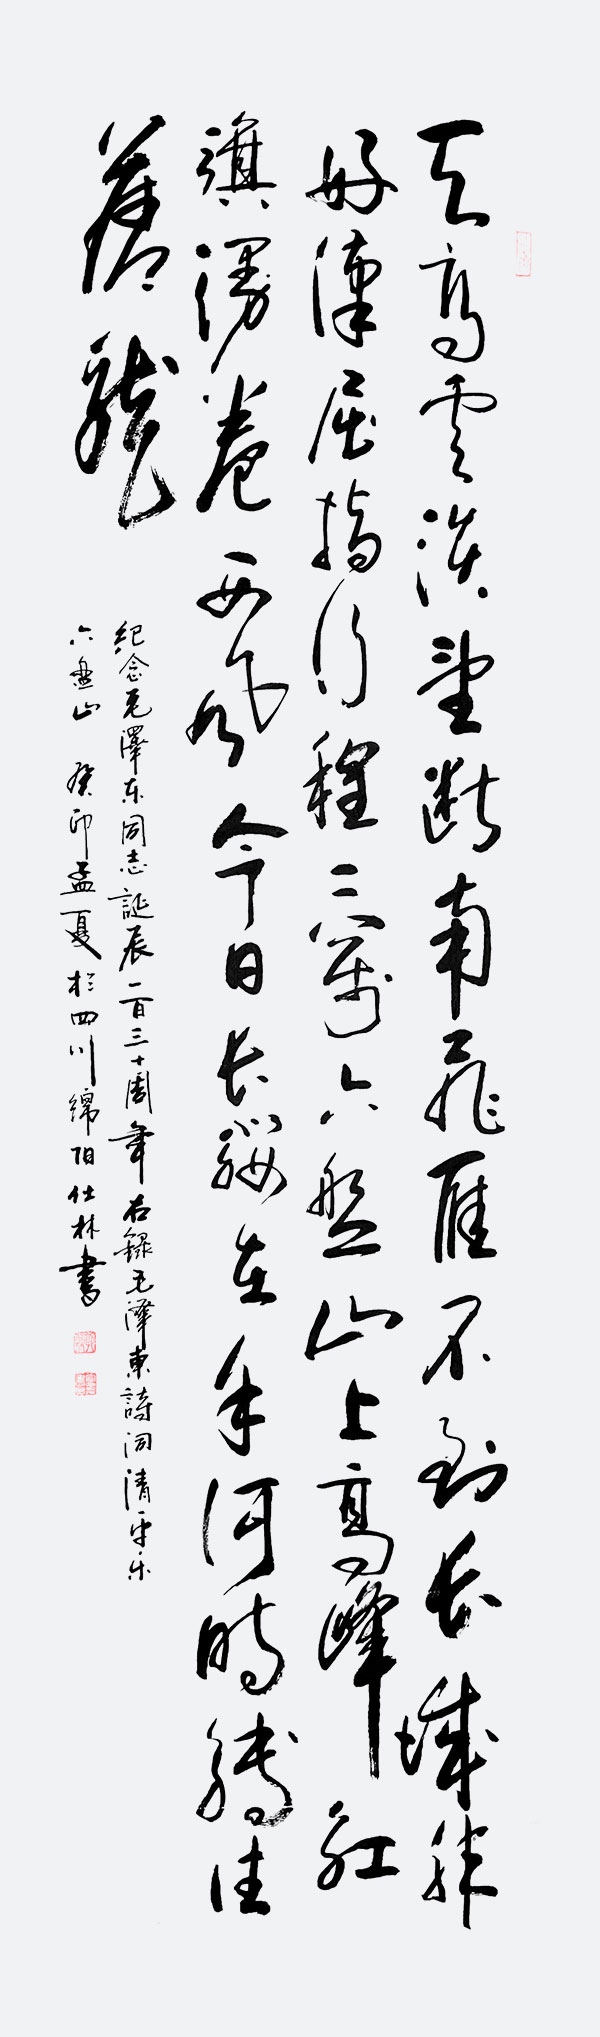 天高雲淡望断南飛雁不到长城非
好漢屈指行程二萬六盤山上高峰红
旗漫卷西风今日长缨在手何時縛住
蒼龍
纪念毛澤东同志誕辰一百三十周年右録毛澤東詩词清平乐
六盘山 癸卯孟夏於四川綿阳仕林書